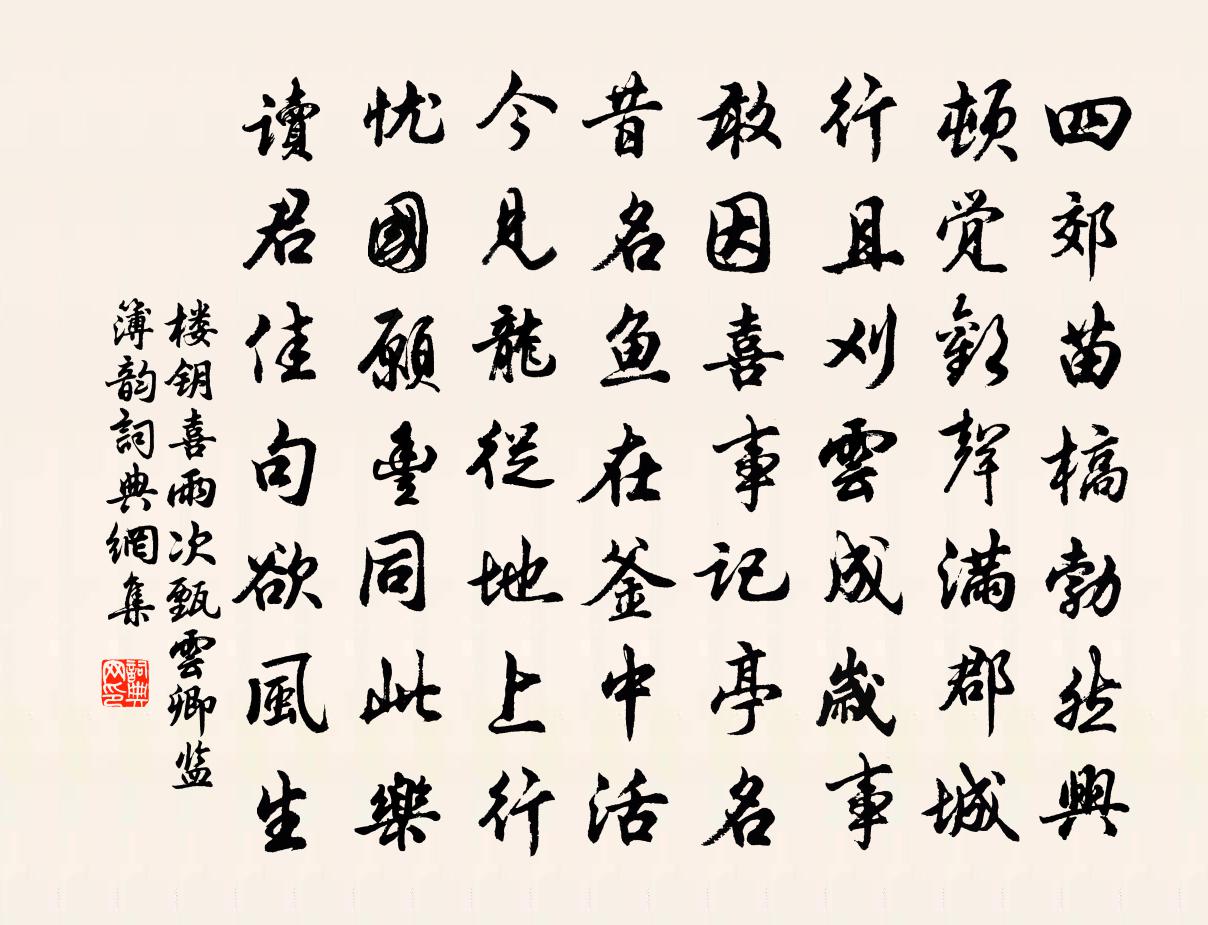 四郊苗槁勃然興
頓覺歡聲滿郡城
行且刈雲成歲事
敢因喜事記亭名
昔名魚在釜中活
今見龍從地上行
忧國願豊同此樂
讀君佳句欲風生
楼钥喜雨次甄雲卿监
簿韵詞典網集
詞典网印